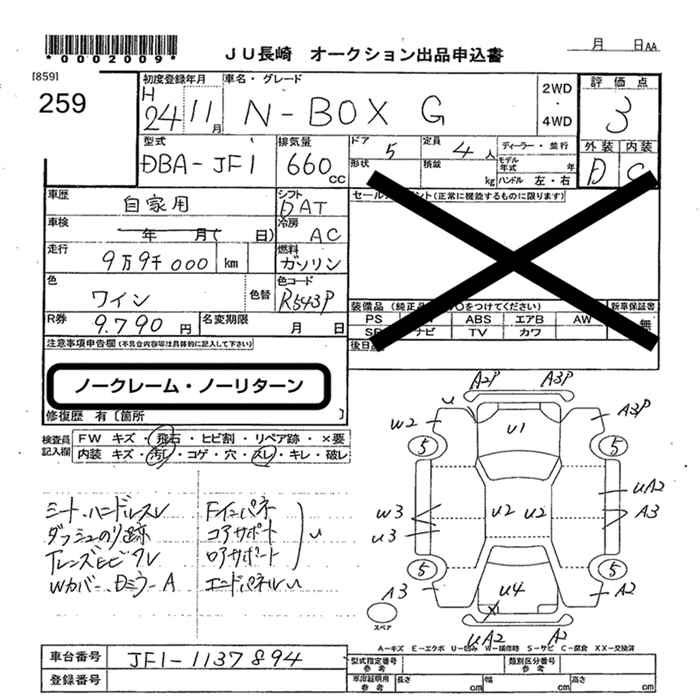 *0002009*
JU長崎 オークション出品申込書
月 日AA
[859]
259
初度登録年月 車名・グレード
H 24 11月 N-BOX G
2WD ・ 4WD
評価点
3
型式 DBA-JF1
排気量 660 CC
ドア 5 定員 4人
形状 積載 kg
ディーラー・並行
モデル年式 年
ハンドル 左・右
外装 内装
D C
車歴 自家用
シフト DAT
セール ント(正常に機能するものに限ります)
車検 年 月( 日)
冷房 AC
走行 9万9千000 km
燃料 ガソリン
色 ワイン 色替
色コード R543P
R券 9.790円
名変期限 月 日
装備品 (純正 ○をつけてください) 新車保証書
PS ABS エアB AW 無
ナビ TV カワ
後日
注意事項申告欄(不具合内容等は具体的に記入して下さい)
ノークレーム・ノーリターン
修復歴 有〔箇所 〕
検査員記入欄
FW キズ・飛石・ヒビ割・リペア跡・×要
内装 キズ・汚レ・コゲ・穴・スレ・キレ・破レ
シート・ハンドルスレ Fインパネ
ダッシュのり跡 コアサポート
Lレンズヒビワレ ロアサポート
Wカバー、Dミラー A エンドパネルU
U
A2P A3P
U W2 U1 A3P
5 5
W3 U3 U2 U2 UA2 A3
5 5
A3 U4 A2
X
UA2 A2
スペア
A-キズ E-エクボ U-凹み W-補修跡 S-サビ C-腐食 XX-交換済
車台番号 JF1-1137894
登録番号
型式指定番号 参考 類別区分番号 参考
車庫証明用 参考 長さ cm 幅 cm 高さ cm